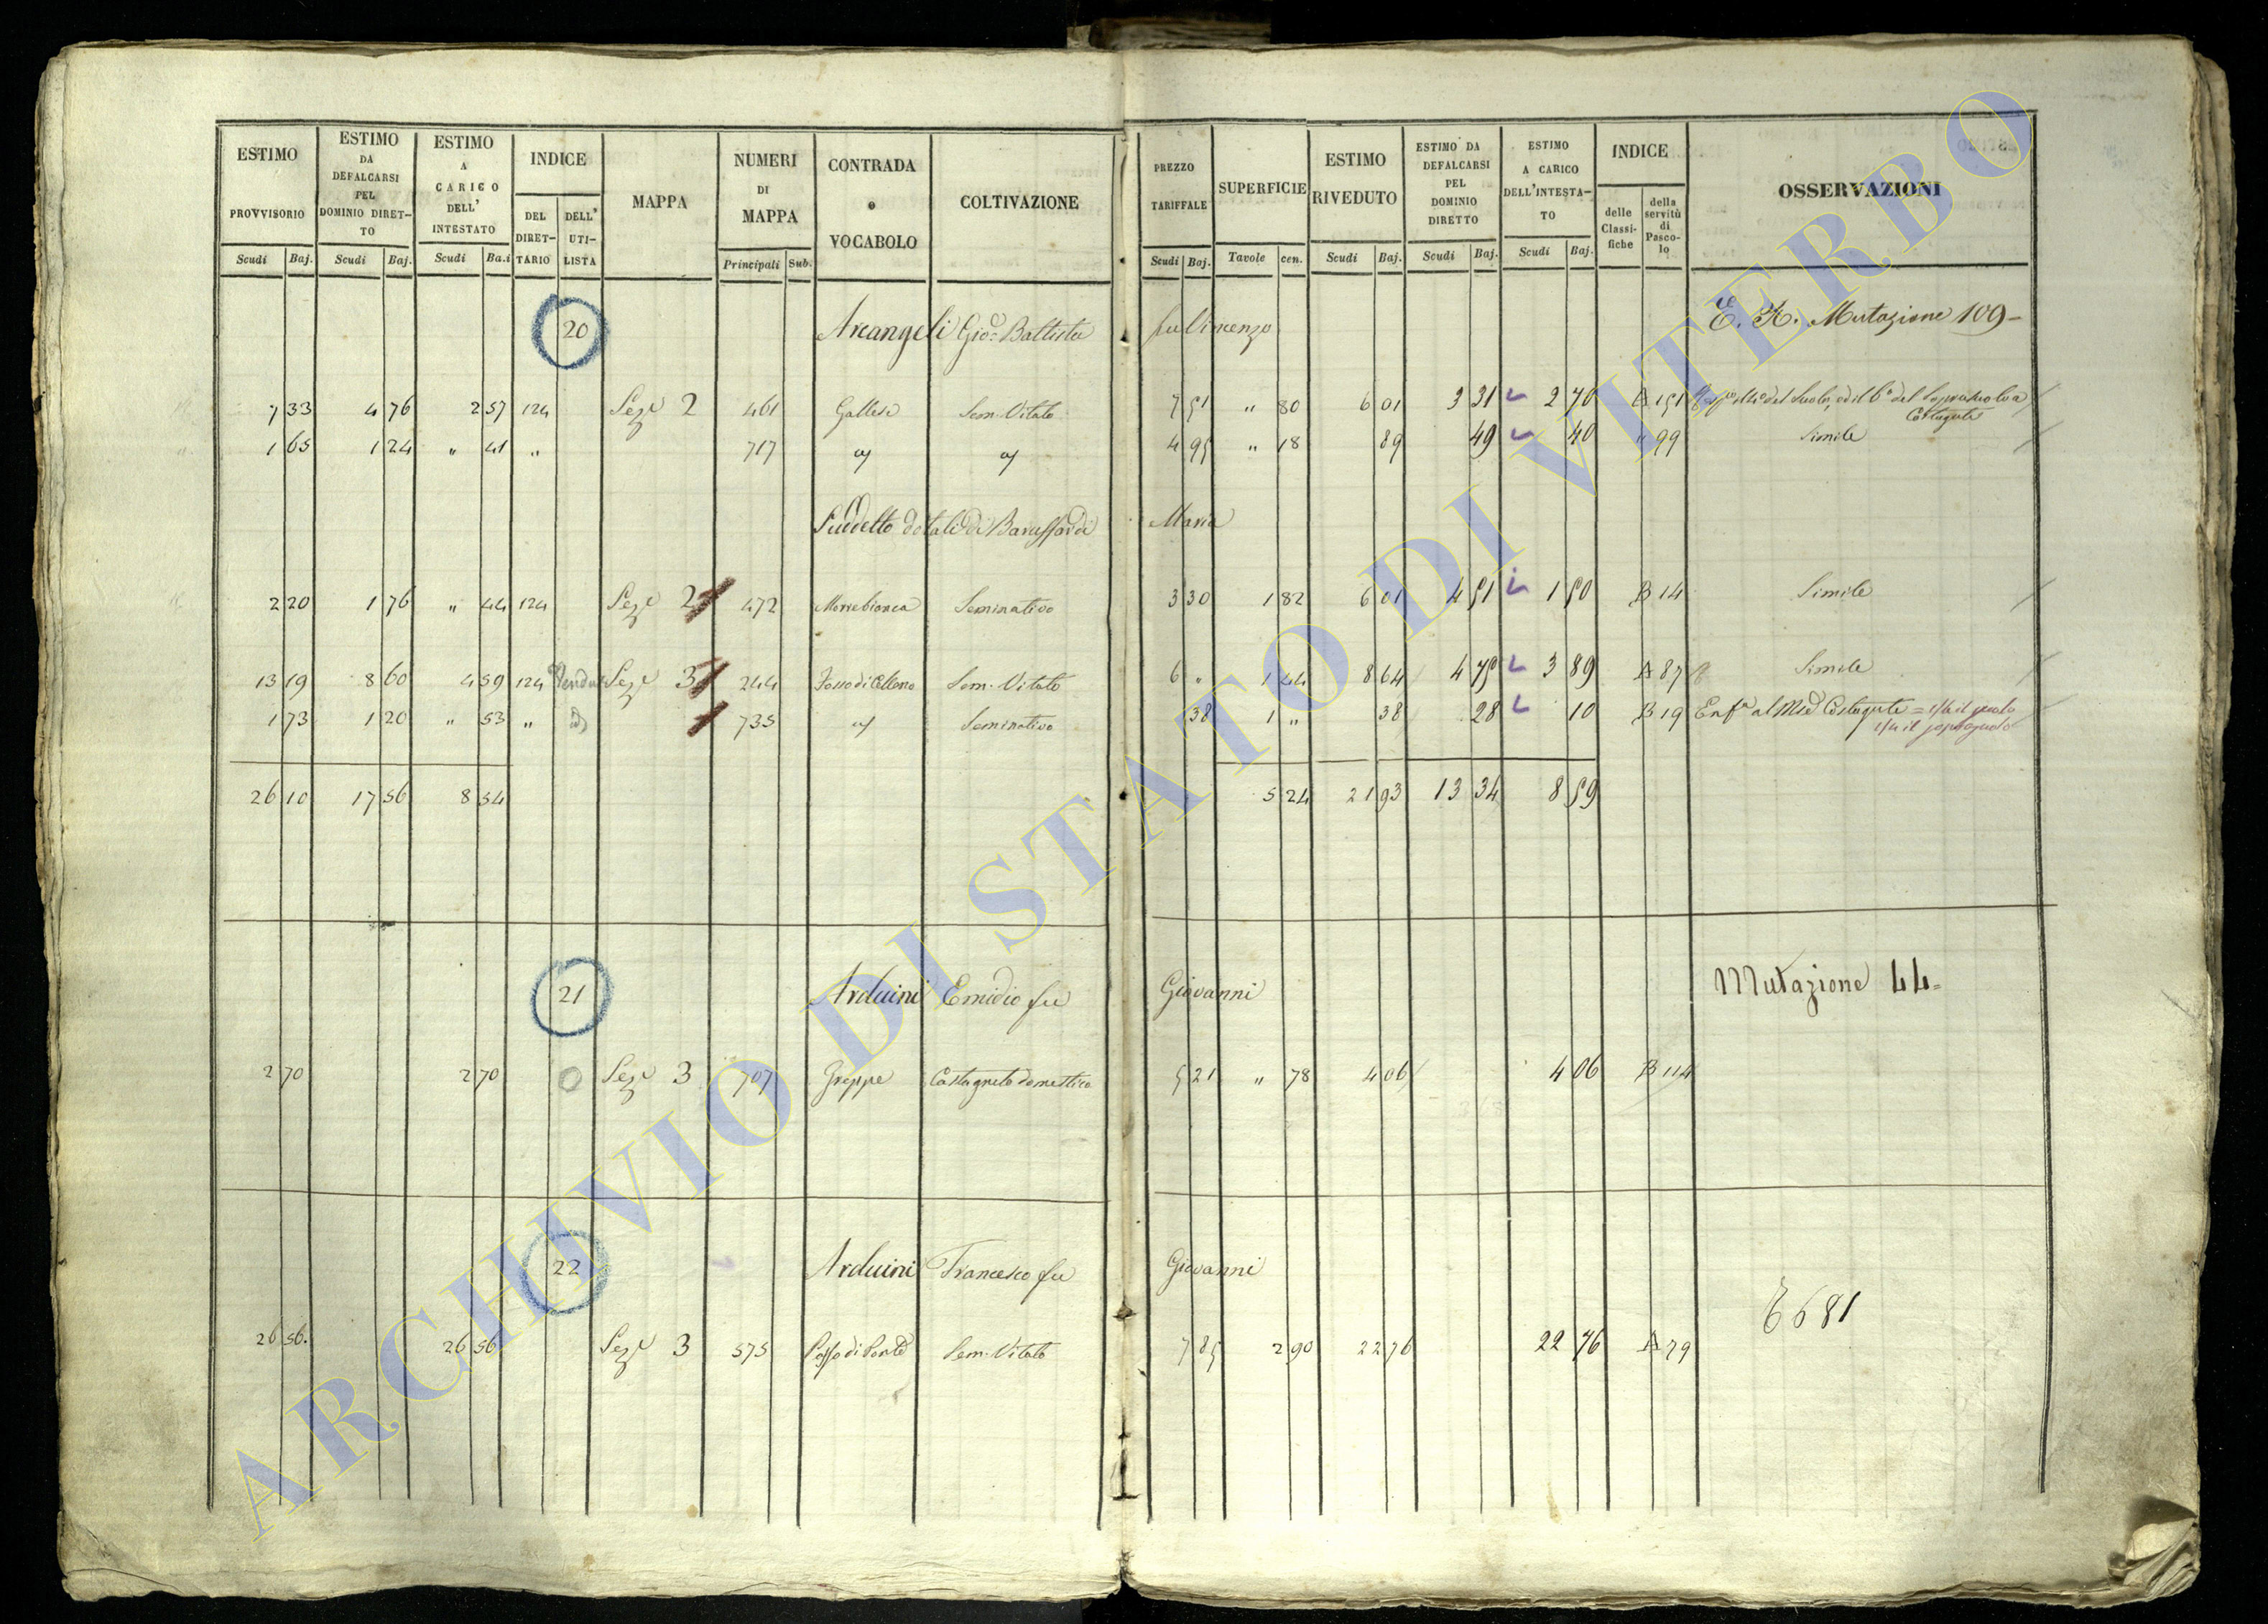 ESTIMO PROVVISORIO Scudi Baj. ESTIMO DA DEFALCARSI PEL DOMINIO DIRETTO Scudi Baj. ESTIMO A CARICO DELL' INTESTATO Scudi Ba.i INDICE DEL DIRETTARIO DELL' UTILISTA MAPPA NUMERI DI MAPPA Principali Sub. CONTRADA e VOCABOLO COLTIVAZIONE PREZZO TARIFFALE Scudi Baj. SUPERFICIE Tavole cen. ESTIMO RIVEDUTO Scudi Baj. ESTIMO DA DEFALCARSI PEL DOMINIO DIRETTO Scudi Baj. ESTIMO A CARICO DELL'INTESTATO Scudi Baj. INDICE delle Classifiche della servitù di Pascolo OSSERVAZIONI
20 Arcangeli Gioe Battista fu Vincenzo E. K. Mutazione 109
7 33 4 76 2 57 124 Seze 2 461 Gallese Sem. Vitato 7 51 " 80 6 01 3 31 2 70 A 151 del Suolo, ed il
Costaguti
1 65 1 24 " 41 " 717 4 95 " 18 89 49 40 " 99 Simile
Suddetto dotali di Baraffardi Maria
2 20 1 76 " 44 124 Seze 2 472 Morrebianca Seminativo 3 30 1 82 6 01 4 51 1 50 B 14 Simile
13 19 8 60 4 59 124 Seze 3 244 Fosso di Celleno Sem. Vitato 6 " 1 44 8 64 4 75 3 89 A 87 Simile
1 73 1 20 " 53 " 735 Seminativo 38 1 " 38 28 10 B 19 Enfa al Costaguti = 1/4 il suolo
1/4 il soprasuolo
26 10 17 56 8 54 5 24 21 93 13 34 8 59
21 Arduini Emidio fu Giovanni Mutazione 44=
2 70 2 70 Seze 3 707 Greppe Castagneto domestico 5 21 " 78 4 06 4 06 B 114
22 Arduini Francesco fu Giovanni
6681
26 56. 26 56 Seze 3 575 Sem. Vitato 7 85 2 90 22 76 22 76 A 79
ARCHIVIO DI STATO DI VITERBO